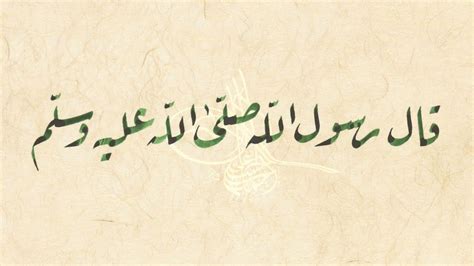 قال رسول اللّه صلّى اللّه عليه وسلّم